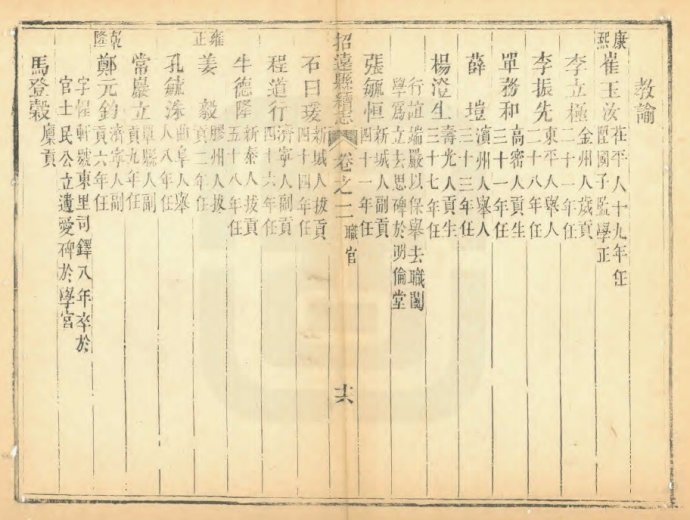 教諭
康熙
崔玉汝 茌平人十九年任陞國子監學正
李立極 金州人歲貢二十一年任
李振先 東平人舉人二十八年任
單務和 高密人貢生三十一年任
薛塏 濱州人舉人三十三年任
楊澄生 壽光人貢生三十七年任
行誼端嚴以保舉去職闔
學爲立去思碑於明倫堂
張毓恒 新城人副貢四十一年任
招遠縣續志 卷之二 職官 十六
石曰瑗 新城人拔貢四十四年任
程道行 濟寧人副貢四十六年任
牛德隆 新泰人拔貢五十八年任
雍正
姜毅 膠州人拔貢二年任
孔毓洙 曲阜人舉人八年任
常巖立 縣人副貢九年任
乾隆
鄭元鈞 濟寧人副貢六年任
字 軒號東里司鐸八年卒於
官士民公立遺愛碑於學宮
馬登穀 廩貢